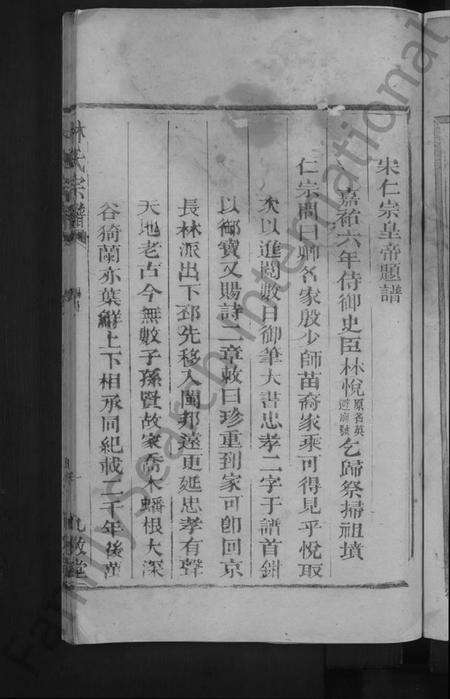 宋仁宗皇帝題譜
嘉祐六年侍御史臣林悅原名英避廟號乞歸祭掃祖墳
仁宗閱曰卿名家殷少師苗裔家乘可得見乎悅取
次以進閱數日御筆大書忠孝二字于譜首鈐
以御寶又賜詩二章敕曰珍重到家可即回京
長林派出下邳先移入閩邦遠更延忠孝有聲
天地老古今無數子孫賢故家喬木蟠根大深
谷猗蘭亦葉鮮上下相承同紀載二千年後
林氏宗譜
九牧堂
FamilySearch International